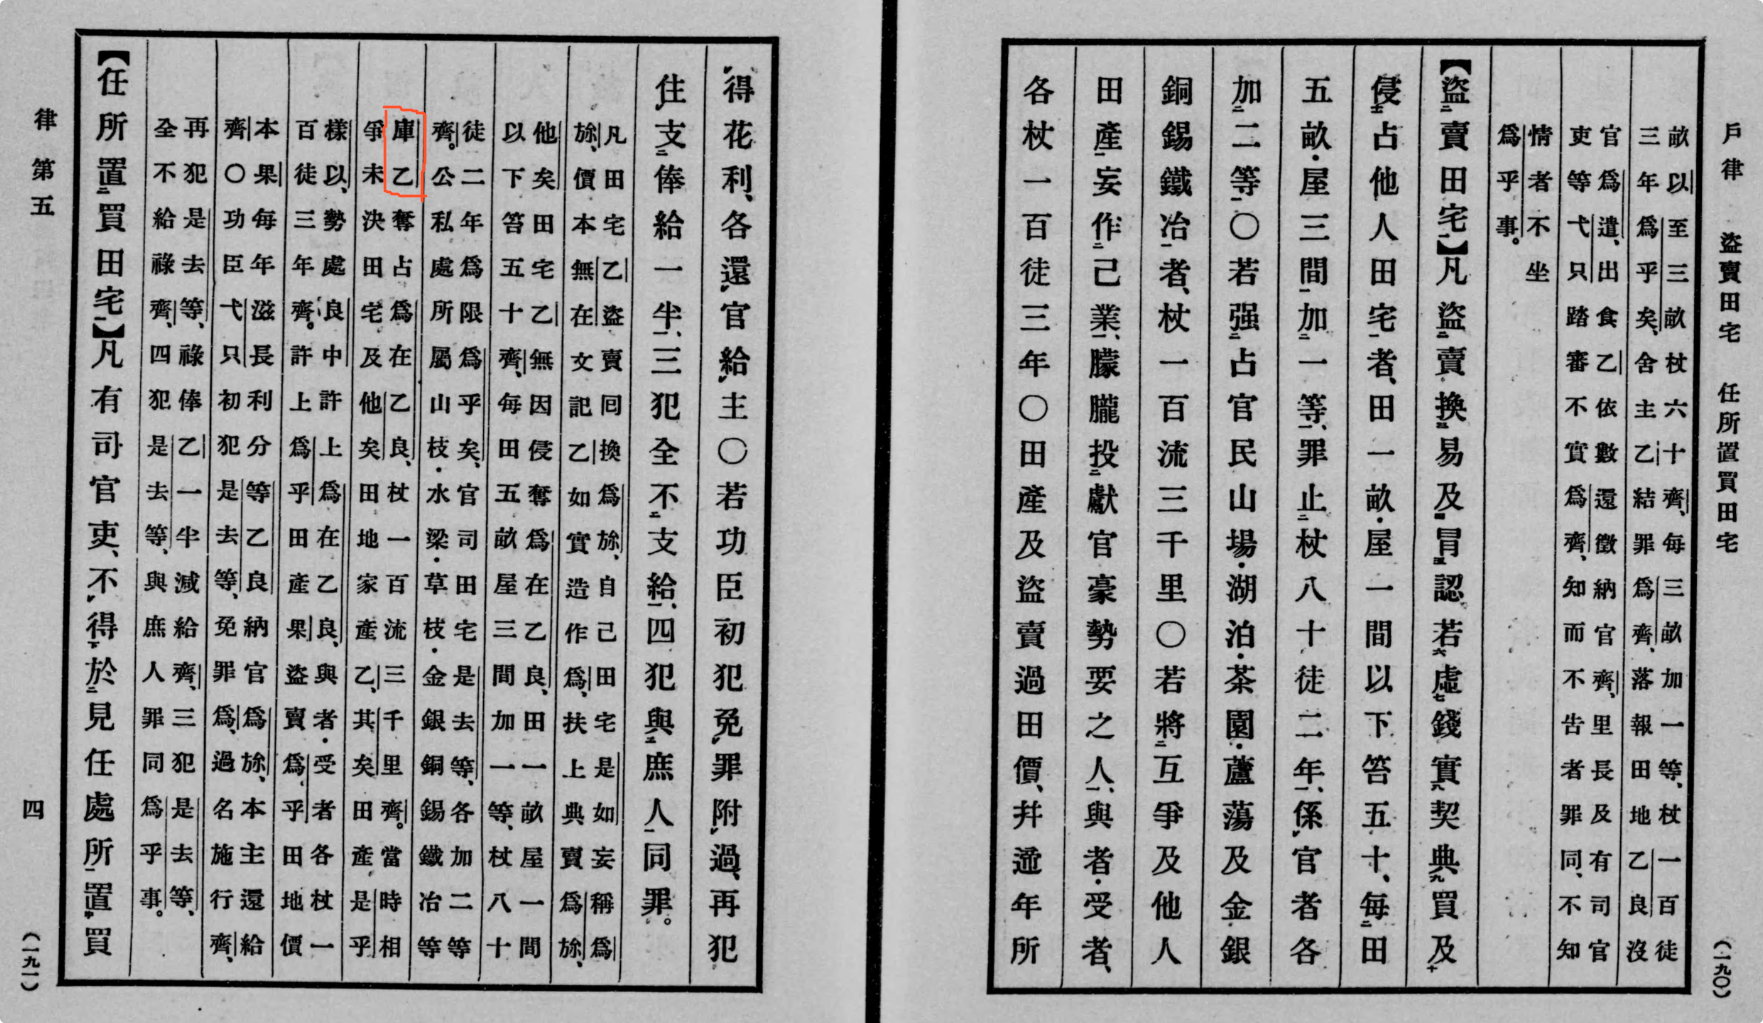 戶律　盜賣田宅　任所置買田宅　（一九〇）
畝以至三畝杖六十齊、每三畝加一等、杖一百徒
三年爲乎矣、舍主乙結罪爲齊、落報田地乙良沒
官爲遣、出食乙依數還徵納官齊、里長及有司官
吏等弋只踏審不實爲齊、知而不告者罪同、不知
情者不坐
爲乎事。
【盜賣田宅】凡盜賣換易及冒認若虛錢實契典買及
侵占他人田宅者、田一畝・屋一間以下笞五十、每田
五畝・屋三間加一等、罪止杖八十徒二年、係官者各
加二等〇若强占官民山場・湖泊・茶園・蘆蕩及金銀
銅錫鐵冶者、杖一百流三千里〇若將互爭及他人
田產妄作己業、朦朧投獻官豪勢要之人、與者・受者、
各杖一百徒三年〇田產及盜賣過田價、幷遞年所
得花利、各還官給主〇若功臣初犯免罪附過、再犯
住支俸給一半、三犯全不支給、四犯與庶人同罪。
凡田宅乙盜賣囘換爲旀、自己田宅是如妄稱爲
旀、價本無在文記乙如實造作爲、扶上典賣爲旀、
他矣田宅乙無因侵奪爲在乙良、田一畝屋一間
以下笞五十齊、每田五畝屋三間加一等、杖八十
徒二年爲限爲乎矣、官司田宅是去等、各加二等
齊。公私處所屬山枝・水梁・草枝・金銀銅錫鐵冶等
庫乙奪占爲在乙良、杖一百流三千里齊。當時相
爭未決田宅及他矣田地家產乙、其矣田產是乎
樣以、勢處良中許上爲在乙良、與者・受者各杖一
百徒三年齊。許上爲乎田產果盜賣爲乎田地價
本果每年滋長利分等乙良納官爲旀、本主還給
齊〇功臣弋只初犯是去等、免罪爲、過名施行齊、
再犯是去等、祿俸乙一半減給齊、三犯是去等、
全不給祿齊、四犯是去等、與庶人罪同爲乎事。
【任所置買田宅】凡有司官吏、不得於見任處所置買
律第五　四　（一九一）